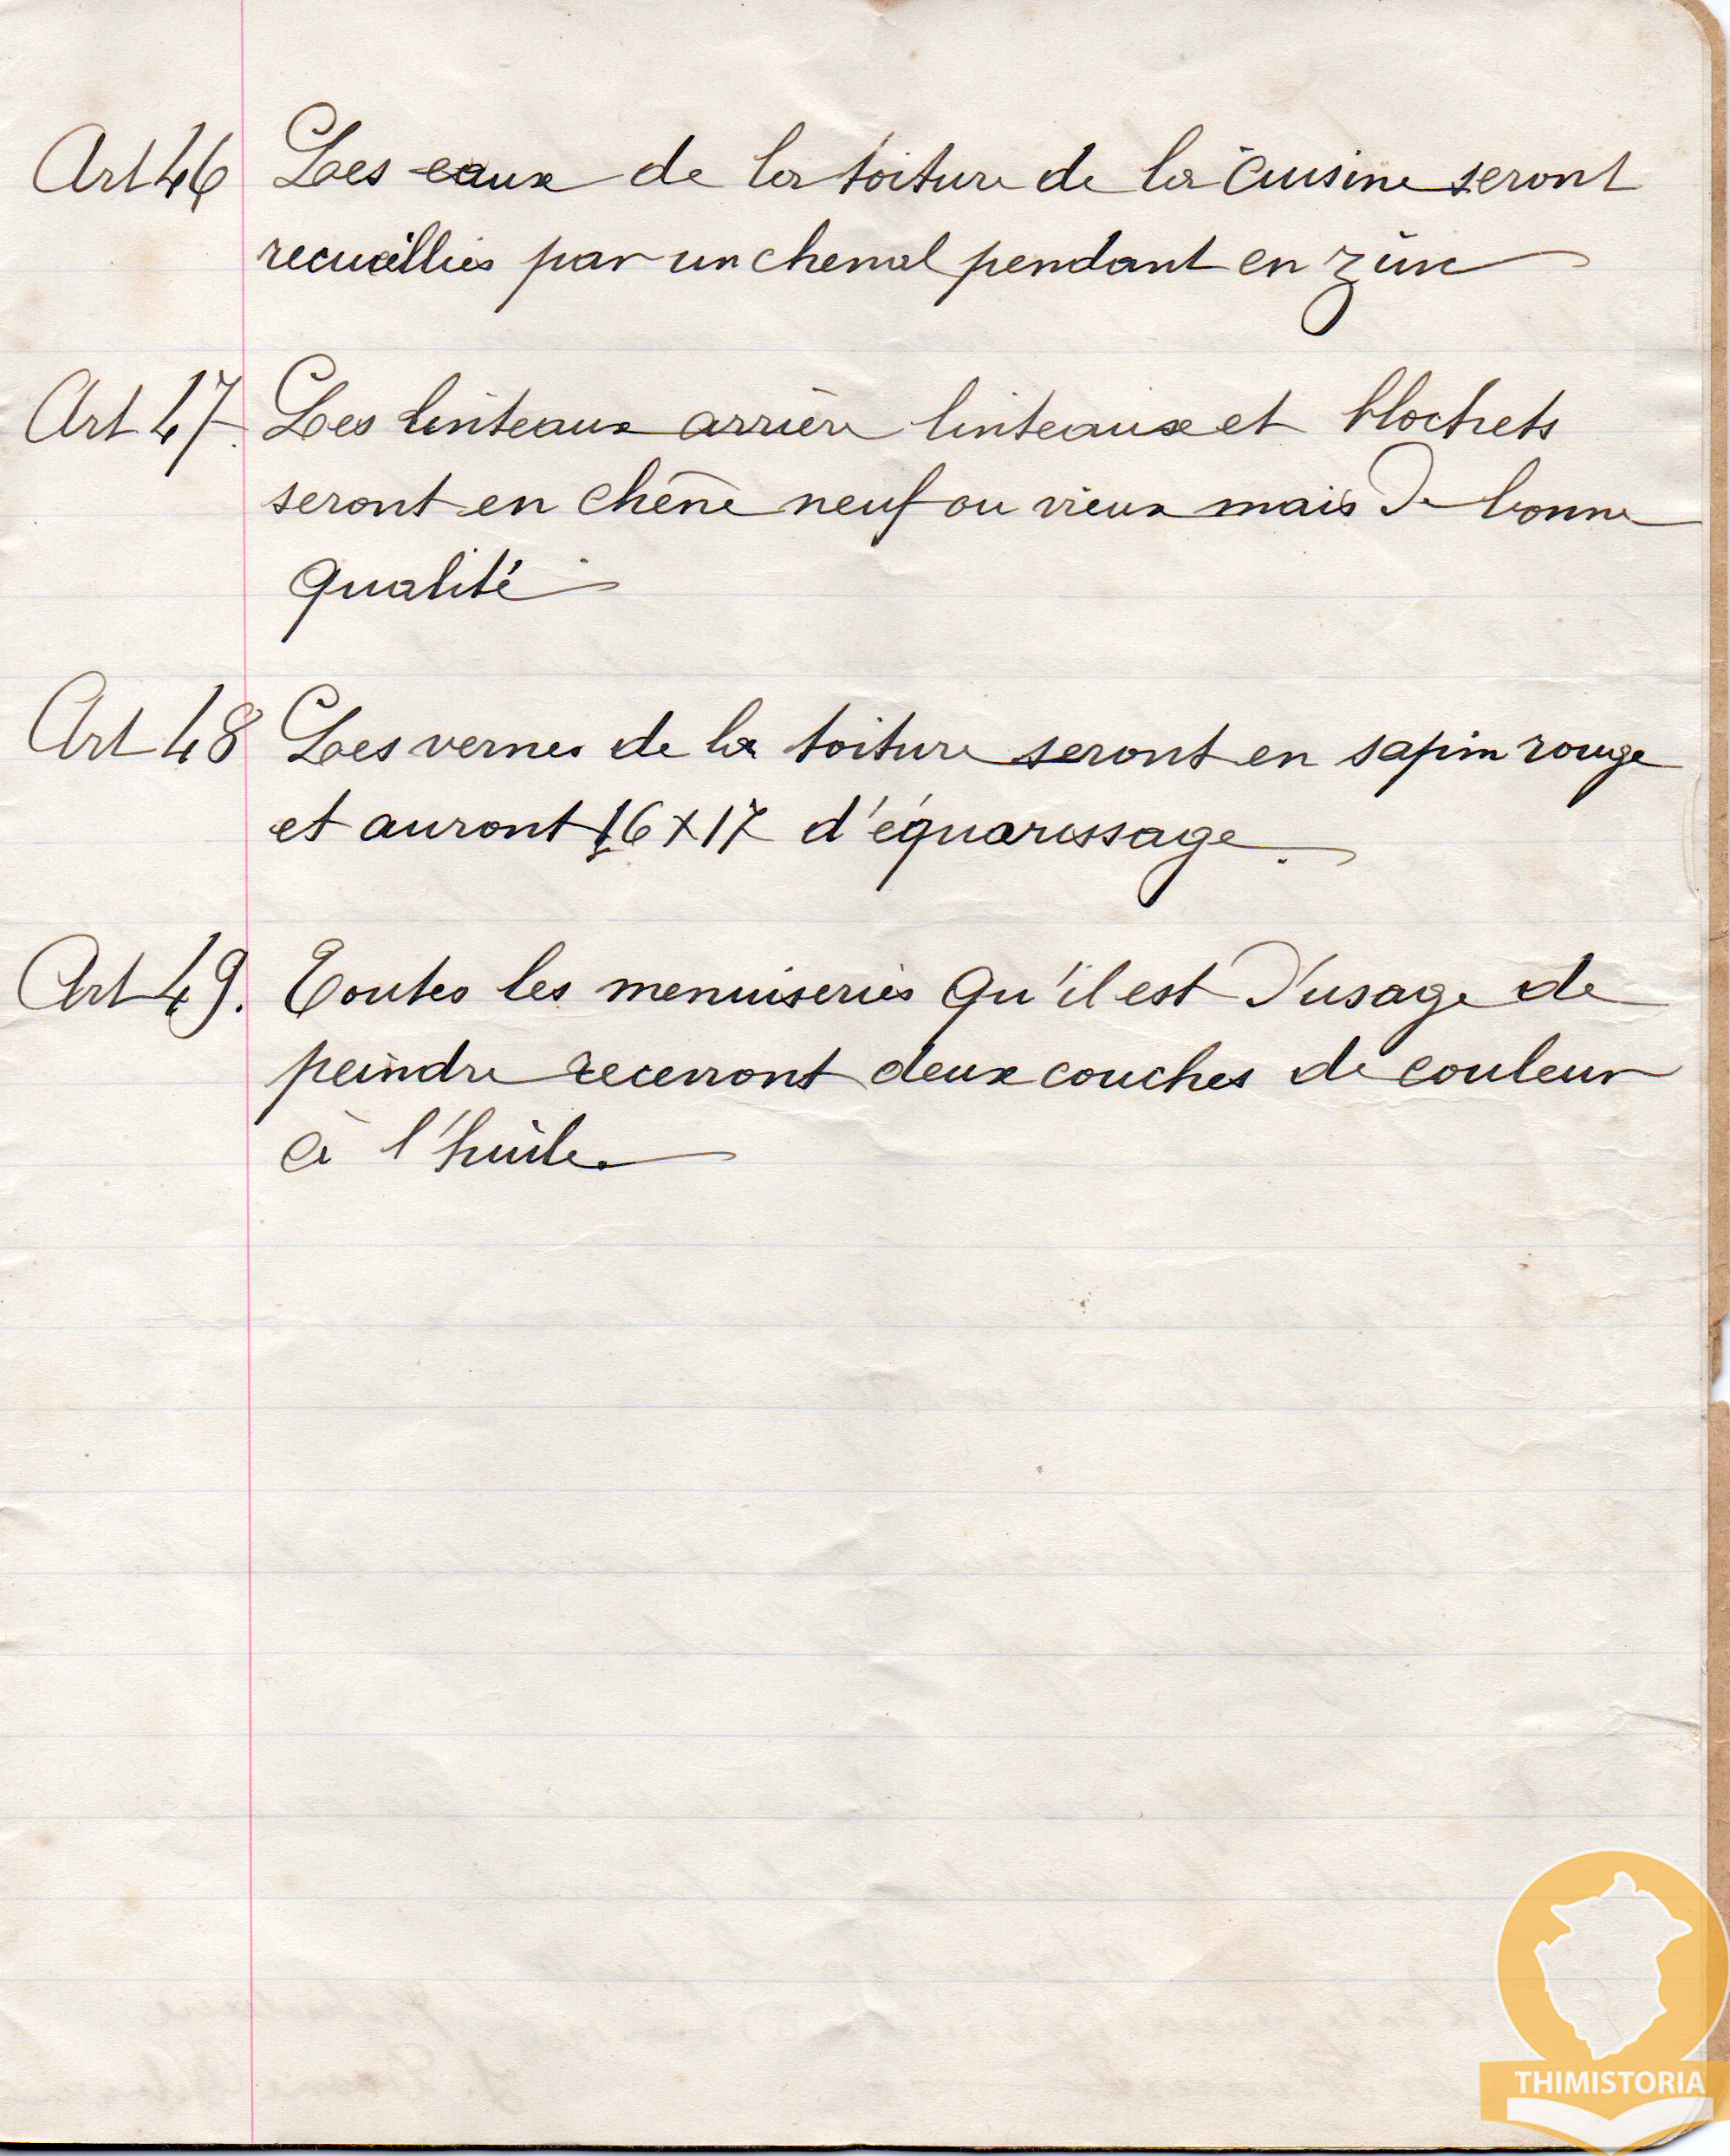 Art 46 Les eaux de la toiture de la cuisine seront
recueillies par un chenal pendant en zinc
Art 47. Les linteaux arrière linteaux et blochets
seront en chêne neuf ou vieux mais de bonne
qualité
Art 48 Les vernes de la toiture seront en sapin rouge
et auront 16 x 17 d'équarissage.
Art 49. Toutes les menuiseries qu'il est d'usage de
peindre recevront deux couches de couleur
à l'huile.
THIMISTORIA